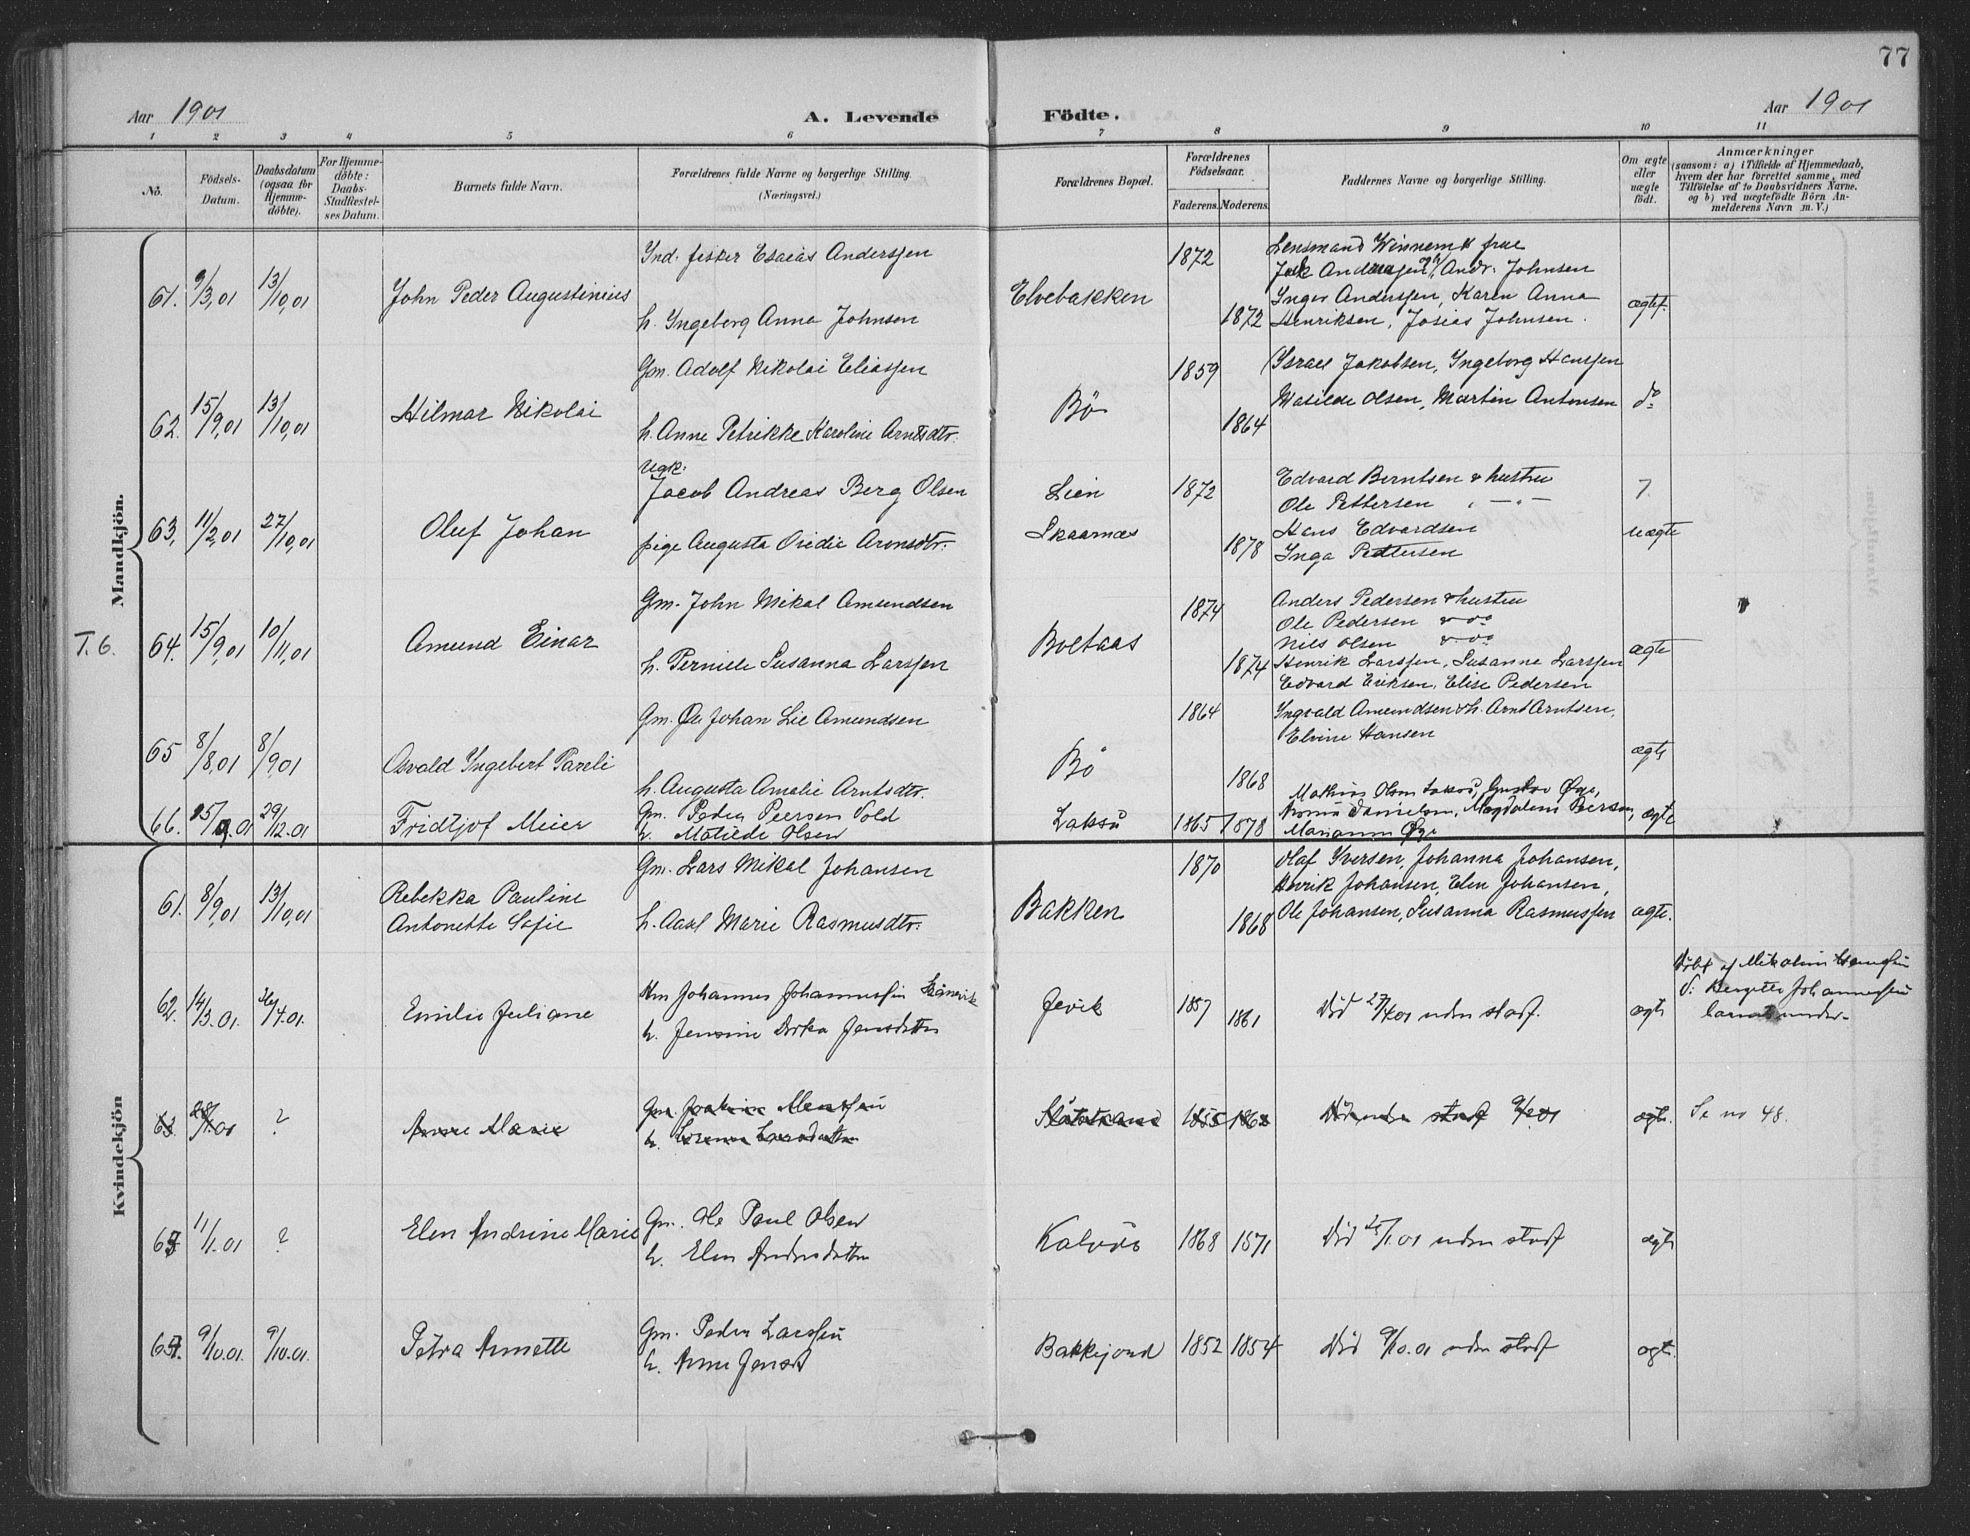 77
Aar 1901 A. Levende Födte. Aar 1901
1 2 3 4 5 6 7 8 9 10 11
No.
Födsels-Datum.
Daabsdatum (ogsaa for Hjemme-döbte).
For Hjemme-döbte: Daabs-Stadfæstel-ses Datum.
Barnets fulde Navn.
Forældrenes fulde Navne og borgerlige Stilling. (Næringsvei.)
Forældrenes Bopæl.
Forældrenes Födselsaar.
Faderens. Moderens.
Faddernes Navne og borgerlige Stilling.
Om ægte eller uægte födt.
Anmærkninger
(saasom: a) i Tilfælde af Hjemmedaab, hvem der har forrettet samme, med Tilföielse af to Daabsvidners Navne, og b) ved uægtefödte Börn An-melderens Navn m. V.)
Mandkjön.
61. 9/3,01 13/10,01 John Peder Augustinius
Ind. fisker Esaias Anderssen
h. Ingeborg Anna Johnsen
Elvebakken 1872 1872
Lensmand Winnem & frue
Andr. Johnsen
Inger Anderssen, Karen Anna
Henriksen, Josias Johnsen.
ægtef.
62. 15/9,01 13/10,01 Hilmar Nikolai
Gm. Adolf Nikolai Eliassen
h. Anne Petrikke Karoline Arntsdtr.
Bö 1859 1864
Israel Jakobsen, Ingeborg Hanssen
Matilde Olsen, Martin Antonsen
do
63, 11/2,01 27/10,01 Oluf Johan
Ugk:
Jacob Andreas Berg Olsen
pige Augusta Ovidie Aronsdtr.
Lien
Skaarnæs
1872 1878
Edvard Berntsen & hustru
Ole Pettersen " — " —
Hans Edvardsen
Inga Pettersen
7.
uægte
T. 6.
64. 15/9,01 10/11,01 Amund Einar
Gm. John Mikal Amundsen
h. Pernille Susanna Larssen
Boltaas 1874 1874
Anders Pedersen & hustru
Ole Pedersen & do
Nils Olsen & do
Henrik Larssen, Susanne Larssen
Edvard Eriksen, Elise Pedersen
ægte
65 8/8,01 8/9,01 Osvald Ingebert Pareli
Gm. Ole Johan Lie Amundsen
h. Augusta Amalie Arntsdtr.
Bö 1864 1868
Ingvald Amundsen & h. Arnt Arntsen,
Elvine Hansen
ægte
66. 15/9.01 29/12.01 Fridtjof Meier
Gm. Peder Peersen Vold
h. Matilde Olsen
Laksu 1865 1878
Mathias Olsen Laksu, Gustav Öye,
Danielsen, Magdalena Peersen,
Marianne Öye
ægte
Kvindekjön
61. 8/9,01 13/10,01 Rebekka Pauline
Antonette Sofie
Gm. Lars Mikal Johansen
h. Aasel Marie Rasmusdtr.
Bakken 1870 1868
Olaf Iversen, Johanna Johansen,
Henrik Johansen, Elen Johansen,
Ole Johansen, Susanna Rasmussen
ægte.
62. 14/3.01. 26/4.01. Emilie Juliane
Gm Johannes Johannessen Skånevik
h. Jensine Dorka Jensdatter
Gevik 1857 1861
Död 27/4 01 uden stadf.
ægte
Döbt af Nikoline Hansen
63. 28/1.01 ? Anne Marie
Gm. Joakim Mentssen
h. Lorense Larsdatter
1855 1862
Död uden stadf 9/2 01
ægte.
Se no 48.
63 11/1.01 ? Elen Andrine Marie
Gm. Ole Paul Olsen
h. Elen Andersdatter
Kalvöe 1868 1871
Död 25/1.01 uden stadf
ægte
64. 9/10.01. 9/10.01. Petra Annette
Gm. Peder Larssen
h. Anne Jensdt
Bakkejord 1852 1854
Död 9/10.01 uden stadf
ægte.